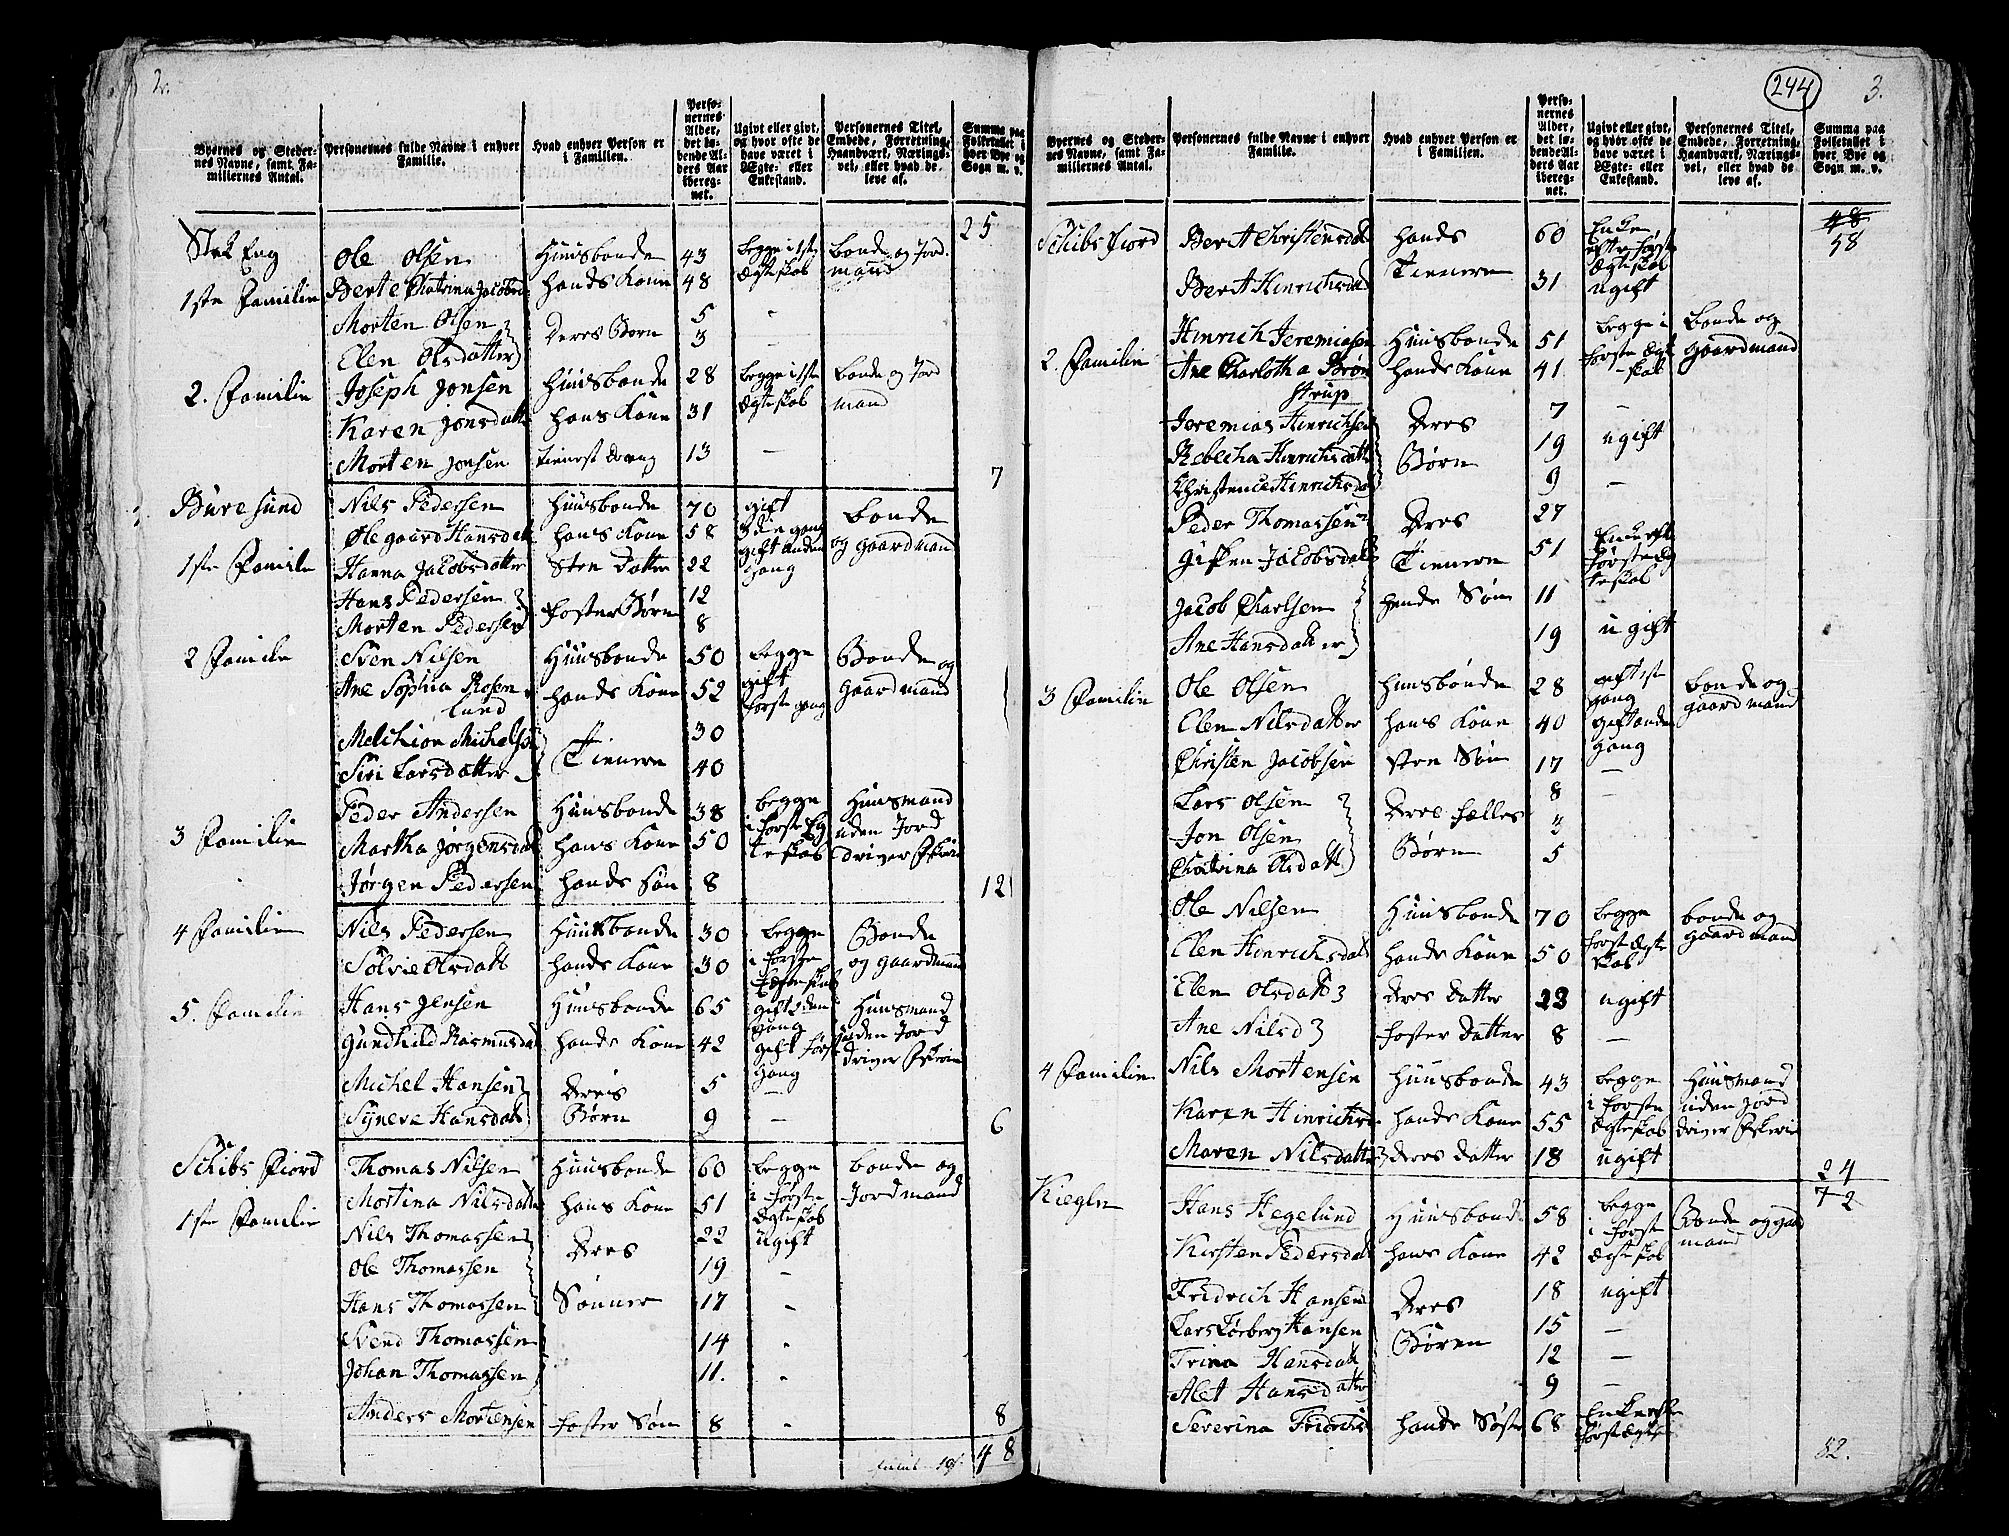 2.
Byernes og Stedernes Navne, samt Familiernes Antal.
Personernes fulde Navne i enhver Familie.
Hvad enhver Person er i Familien.
Personernes Alder, det løbende Alders Aar iberegnet.
Ugivt eller givt, og hvor ofte de have været i Ægte- eller Enkestand.
Personernes Titel, Embede, Forretning, Haandværk, Næringsvei, eller hvad de leve af.
Summa paa Folketallet i hver Bye og Sogn m. v.
25
Stek Eng Ole Olsen Huusbonde 43 begge i 1ste Ægteskab bonde og Jordmand
1ste Familie Berte Chatrina Jacobsd hands Kone 48
Morten Olsen 5 -
Elen Olsdatter Deres Børn 3 -
2. Familie Joseph Jonsen Huusbonde 28 begge i 1ste Ægteskab bonde og Jordmand
Karen Jonsdatt hans Kone 31
Morten Jonsen tienest dreng 13 -
7
Buresund Nils Pedersen Huusbonde 70 gift bonde og gaardmand
Olegaard Hansdatt hans Kone 58 gift anden gang
1ste Familie Hanna Jacobsdatter Sten Datter 22
Hans Pedersen 12
Morten Pedersen foster Børn 8
2 Familie Sven Nilsen Huusbonde 50 begge gift første gang Bonde og gaardmand
Ane Sophia Rosenlund hands Kone 52
Melchior Michelsen Tienere 30
Siri Larsdatter 40
3 Familie Peder Andersen Huusbonde 38 begge i første Egteskab Huusmand uden Jord
Martha Jørgensdat hans Kone 50 driger Fskerie
Jørgen Pedersen hands søn 8
12
4 Familie Nils Pedersen Huusbonde 30 begge i første Bonde og gaardmand
Solvie Olsdatt hands Kone 30
5. Familie Hans Jensen Huusbonde 65 gift 2den gang Huusmand uden Jord
Gundhild Rasmusdat hands Kone 42 gift første gang driger Fskerie
Michel Hansen Deres 5 -
Syneva Hansdatt Børn 9 -
6
Schibs Fiord Thomas Nilsen Huusbonde 60 begge i første Ægteskab bonde og Jordmand
1ste Familie Martina Nilsdatt hans Kone 51
Nils Thomassen Deres 22 Ugift
Ole Thomassen 19 -
Hans Thomassen Sønner 17 -
Svend Thomassen 14 -
Johan Thomassen 11. -
Anders Mortensen foster Søn 8 -
8
48
244
3.
Byernes og Stedernes Navne, samt Familiernes Antal.
Personernes fulde Navne i enhver Familie.
Hvad enhver Person er i Familien.
Personernes Alder, det løbende Alders Aar iberegnet.
Ugivt eller givt, og hvor ofte de have været i Ægte- eller Enkestand.
Personernes Titel, Embede, Forretning, Haandværk, Næringsvei, eller hvad de leve af.
Summa paa Folketallet i hver Bye og Sogn m. v.
48
58
Schibs fiord Berit Christensdat hands 60 Enke efter første Ægteskab
Berit Hinrichsdat Tienere 31 ugift
2. Familie Hinrich Jeremiasen Huusbonde 51 begge i første Ægteskab bonde og gaardmand
Ane Charlotha Brønstrup hands Kone 41
Jeremias Hinrichsen Deres 7 -
Rebecha Hinrichsdatt Børn 19 ugift
Christence Hinrichsdat 9 -
Peder Thomassen Deres 27
Gisken Jacobsdatt Tienere 51 Enke eft første Ægteskab
Jacob Charlsen hendes Søn 11
Ane Hansdatter 19 ugift
3 Familie Ole Olsen Huusbonde 28 gift 1ste gang bonde og gaardmand
Elen Nilsdatter hans Kone 40 gift anden gang
Christen Jacobsen sten Søn 17 -
Lars Olsen 8 -
Jon Olsen Deres fælles 3
Chatrina Olsdatt Børn 5
Ole Nilsen Huusbonde 70 begge første Ægteskab bonde og gaardmand
Elen Hinrichsdat hands Kone 50
Elen Olsdatt Deres Datter 22 ugift
Ane Nilsd foster Datter 8 -
4 Familie Nils Mortensen Huusbonde 43 begge i første Ægteskab Huusmand uden Jord
Karen Hinrichsd hands Kone 55 driger Fskerie
Maren Nilsdatter deres datter 18 ugift
24
72
Kieglen Hans Hegelund Huusbonde 58 begge i første Ægteskab Bonde og gaardmand
Kirsten Pedersdat hans Kone 42
Fridrich Hansen Deres 18 ugift
Lars Lorberg Hansen Børen 15 -
Trina Hansdatt 12 -
Alet Hansdatter 9 -
Severina Fridrichs hands Søster 68
82.